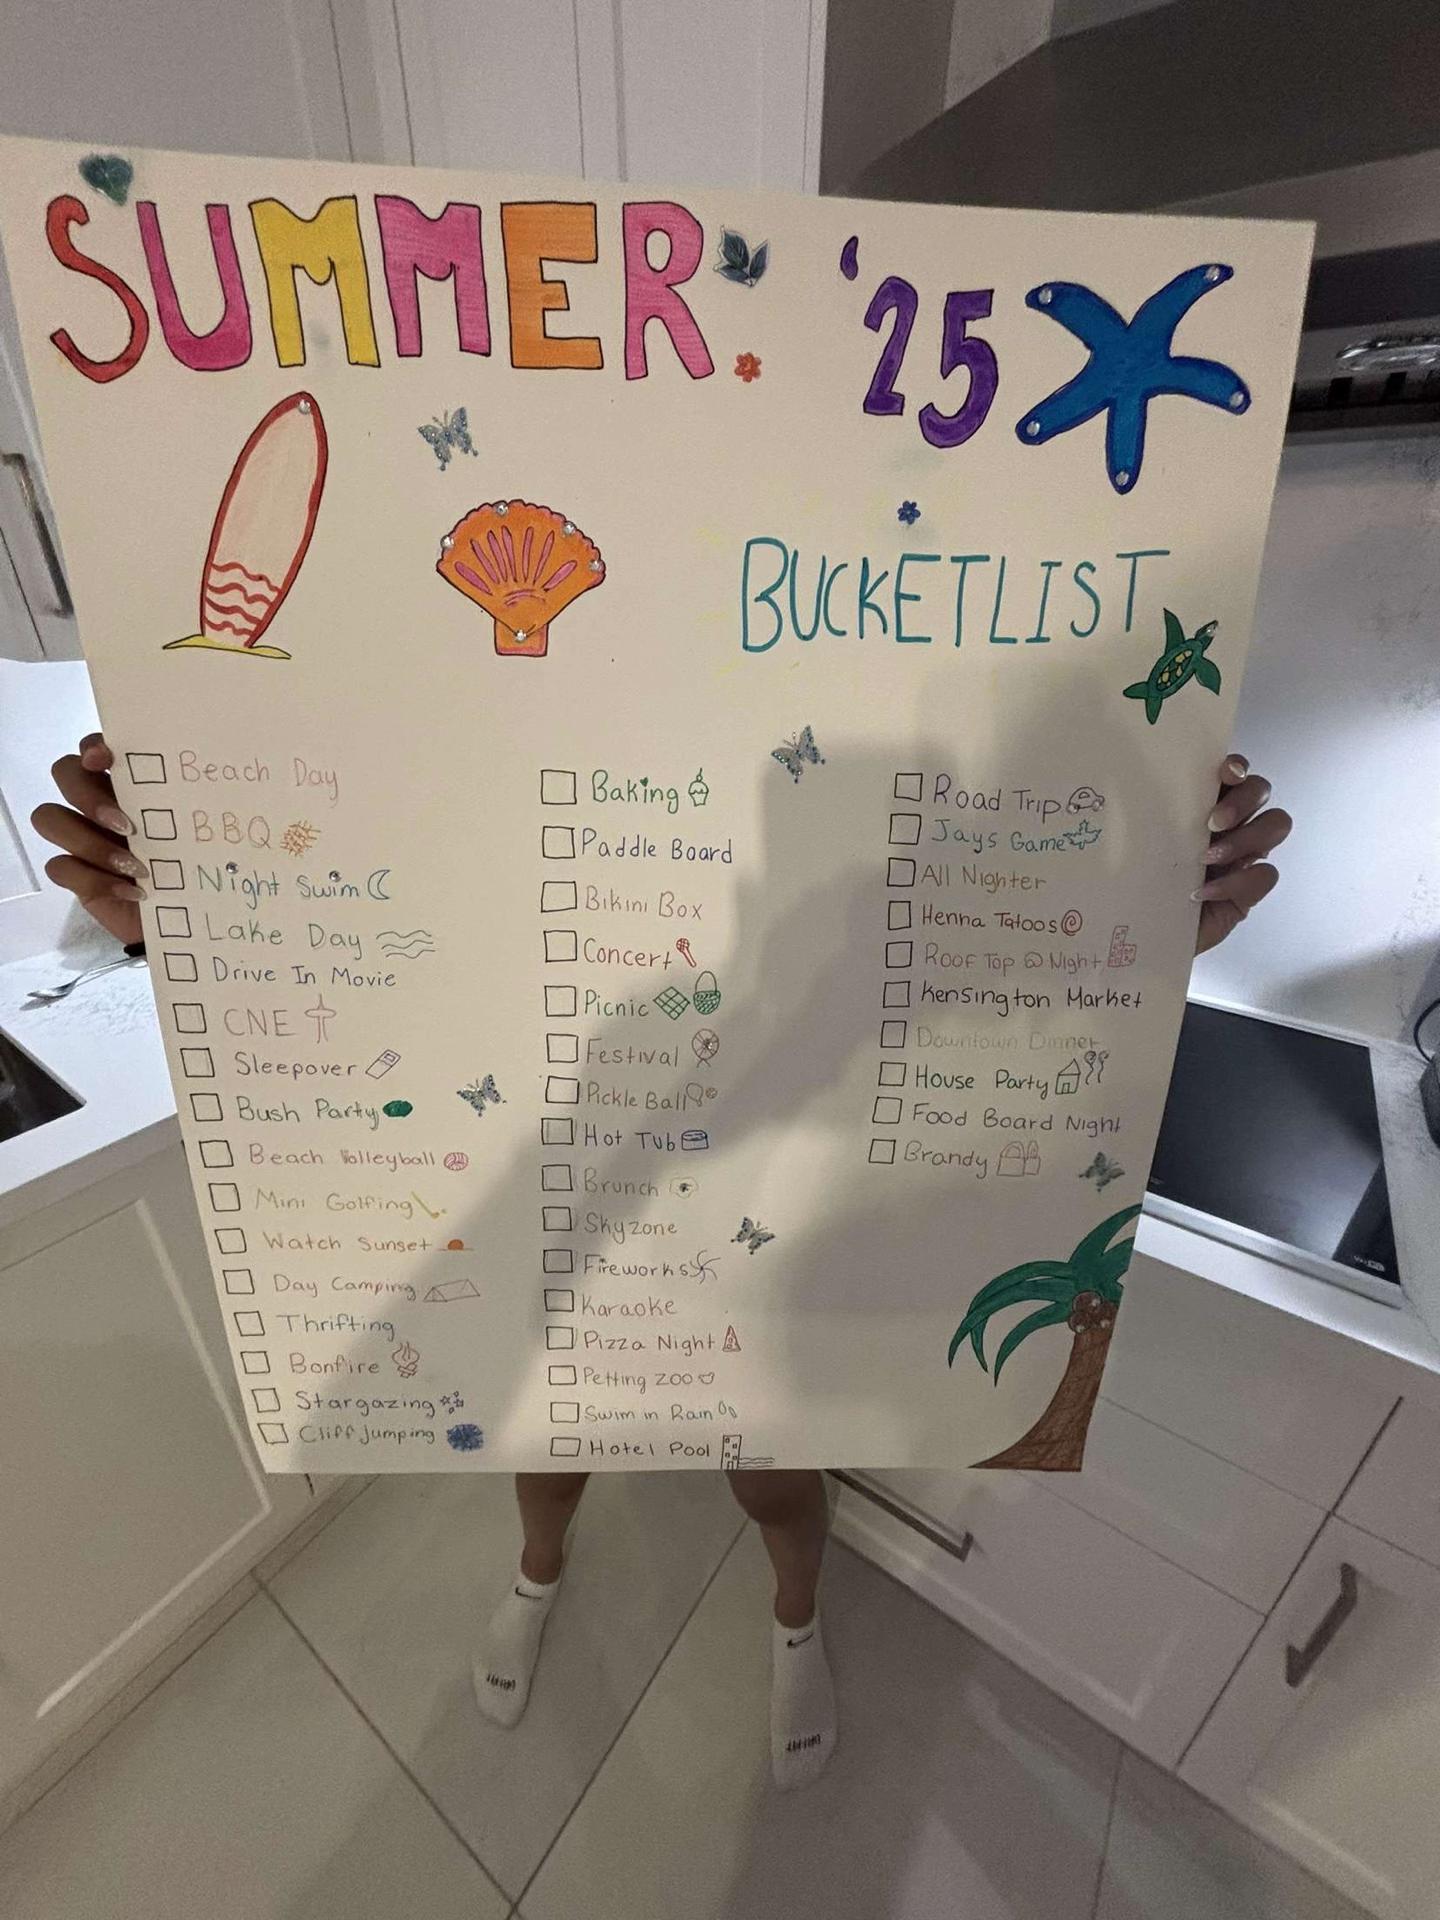 SUMMER '25
BUCKETLIST
Beach Day
BBQ
Night Swim
Lake Day
Drive In Movie
CNE
Sleepover
Bush Party
Beach Volleyball
Mini Golfing
Watch Sunset
Day Camping
Thrifting
Bonfire
Stargazing
Cliff Jumping
Baking
Paddle Board
Bikini Box
Concert
Picnic
Festival
Pickle Ball
Hot Tub
Brunch
Skyzone
Fireworks
Karaoke
Pizza Night
Petting Zoo
Swim in Rain
Hotel Pool
Road Trip
Jays Game
All Nighter
Henna Tatoos
Roof Top @ Night
Kensington Market
Downtown Dinner
House Party
Food Board Night
Brandy